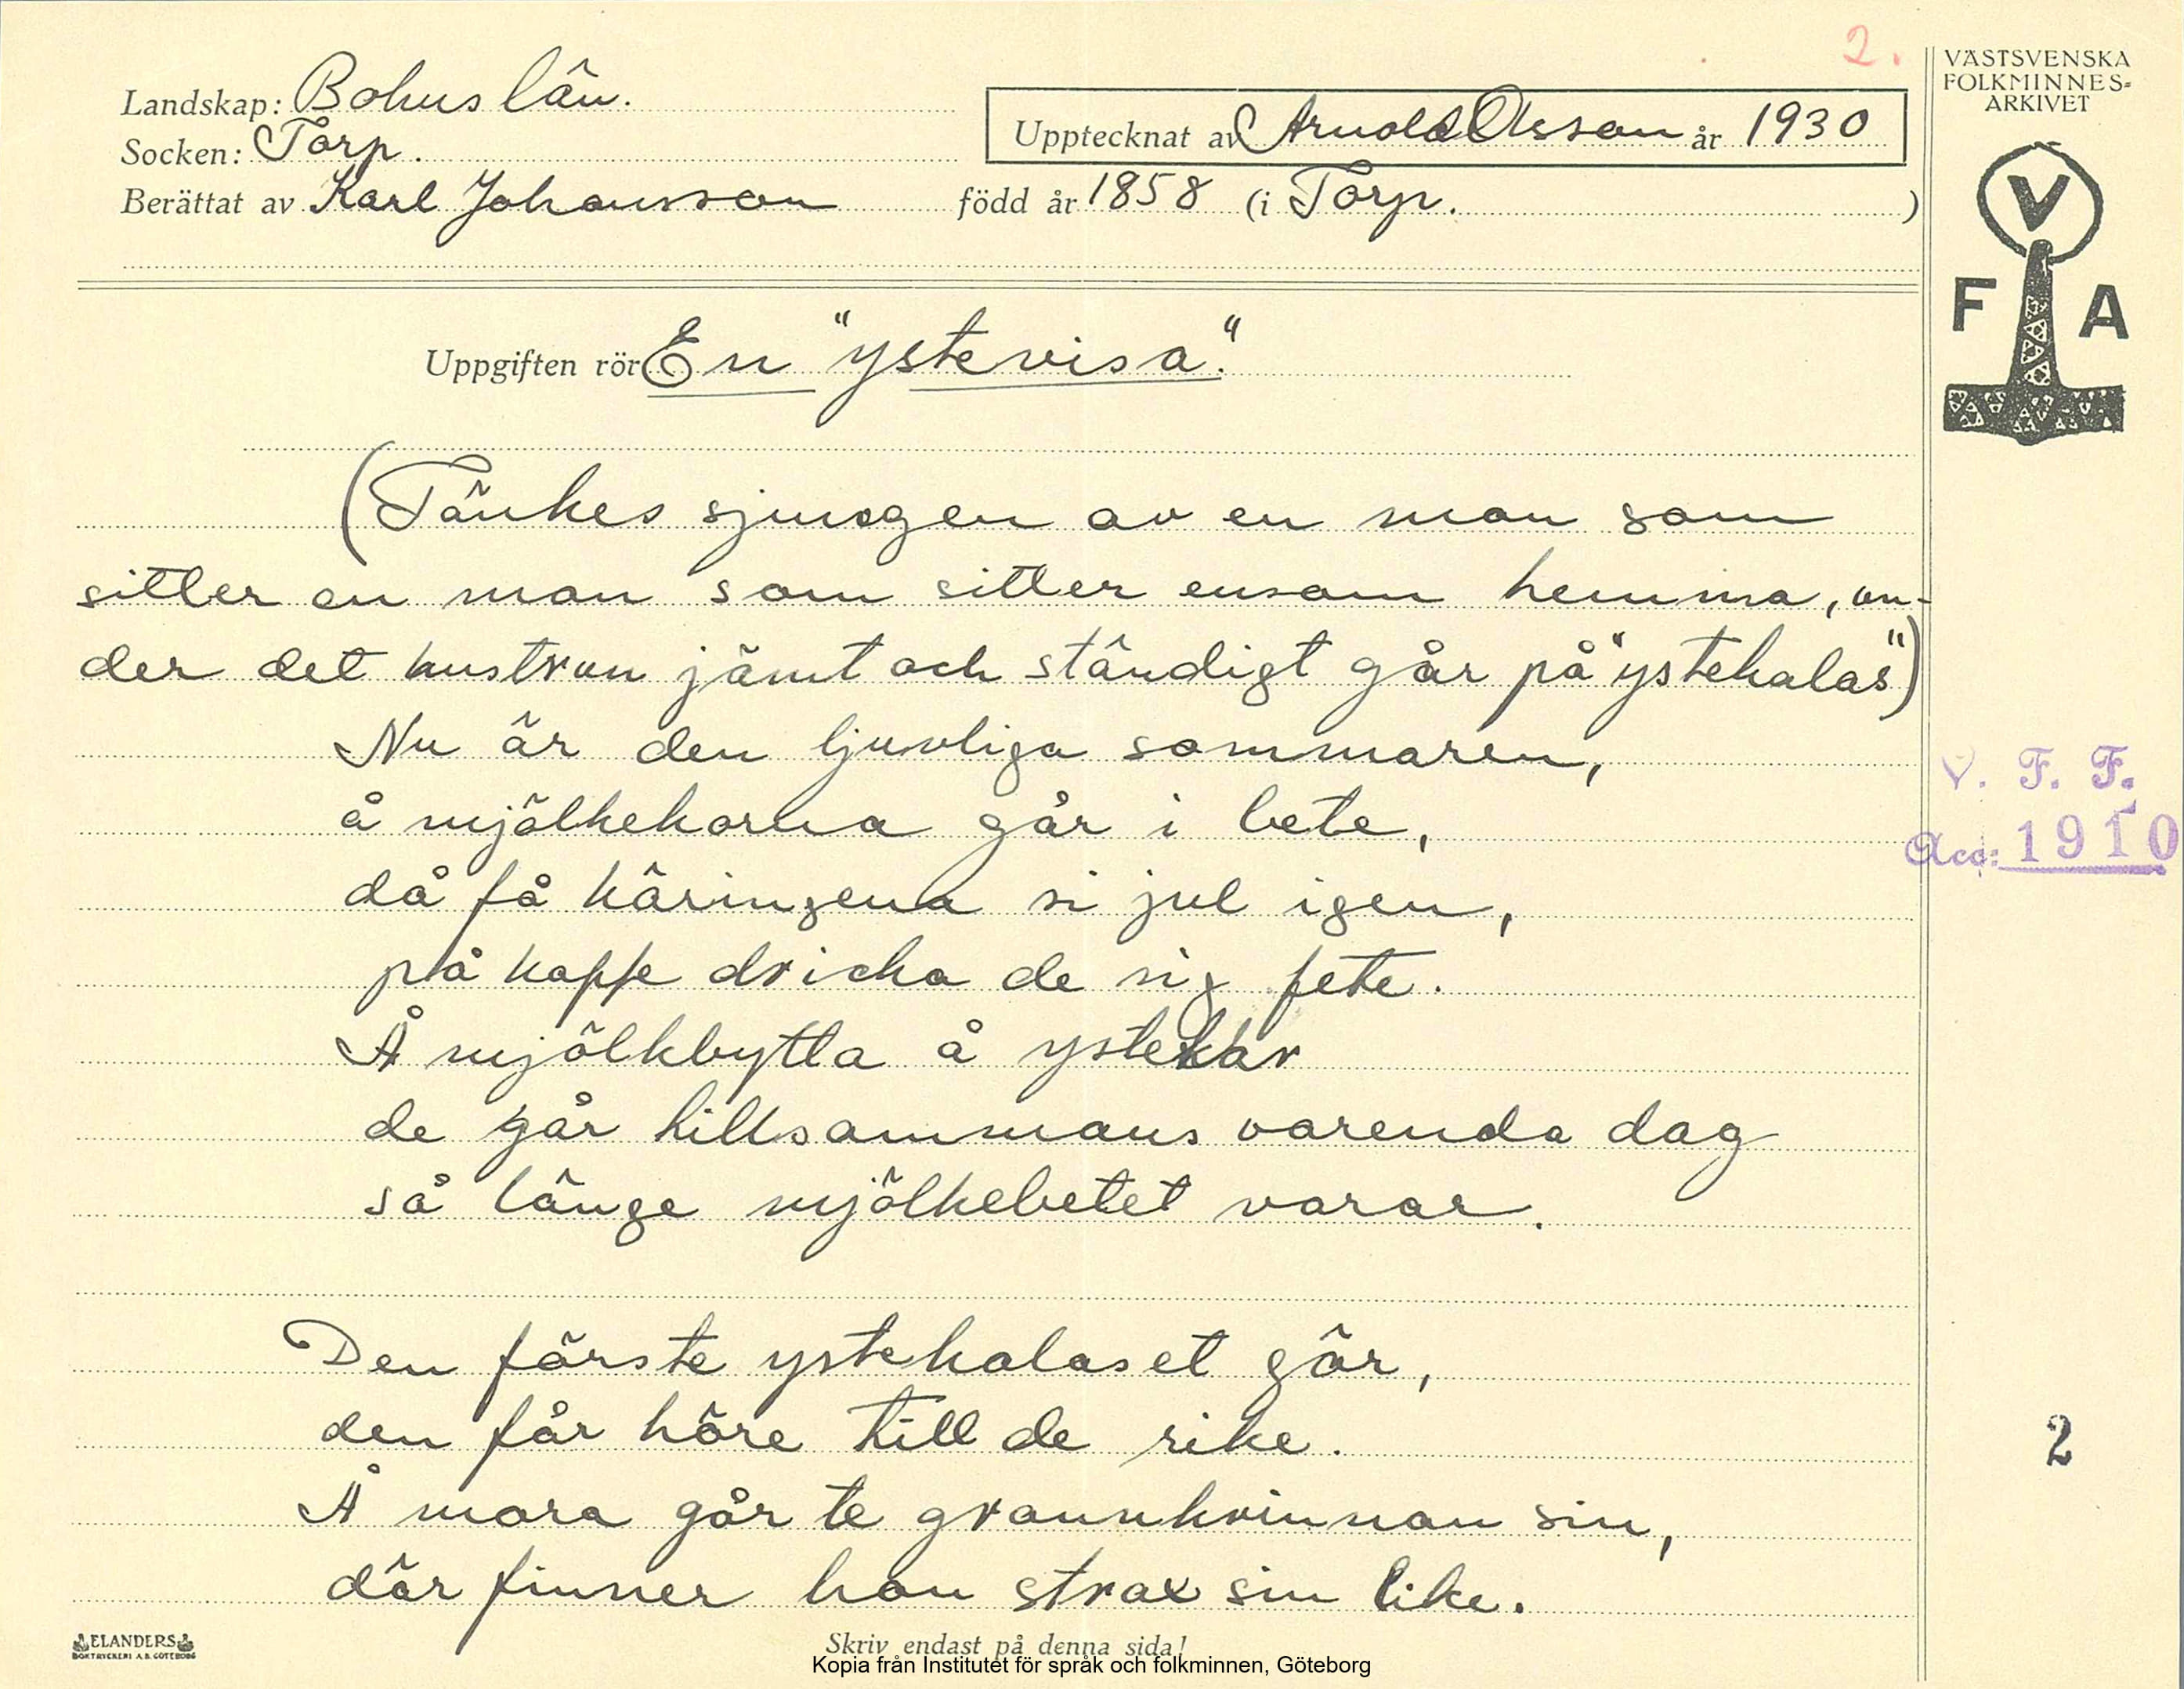 2.
VÄSTSVENSKA
FOLKMINNES-
ARKIVET
Landskap: Bohuslän.
Upptecknat av Arnold Olsson år 1930
Socken: Torp.
Berättat av Karl Johansson född år 1858 (i Torp. )
V
F A
Uppgiften rör En "ystevisa".
(Tänkes sjungen av en man som
sitter en man som sitter ensam hemma, un-
der det hustrun jämt och ständigt går på "ystekalas")
Nu är den ljuvliga sommaren,
å mjölkekorna går i bete,
då få käringena si jul igen,
på kaffe dricka de sig fete.
Å mjölkbytta å ystekar
de går tillsammans varenda dag
så länge mjölkebetet varar.
V. F. F.
Acc: 1910
Den förste ystekalaset gör,
den får höre till de rike.
Å mora går te grannkvinnan sin,
där finner hon strax sin like.
2
ELANDERS
BOKTRYCKERI A.B. GÖTEBORG
Skriv endast på denna sida!
Kopia från Institutet för språk och folkminnen, Göteborg